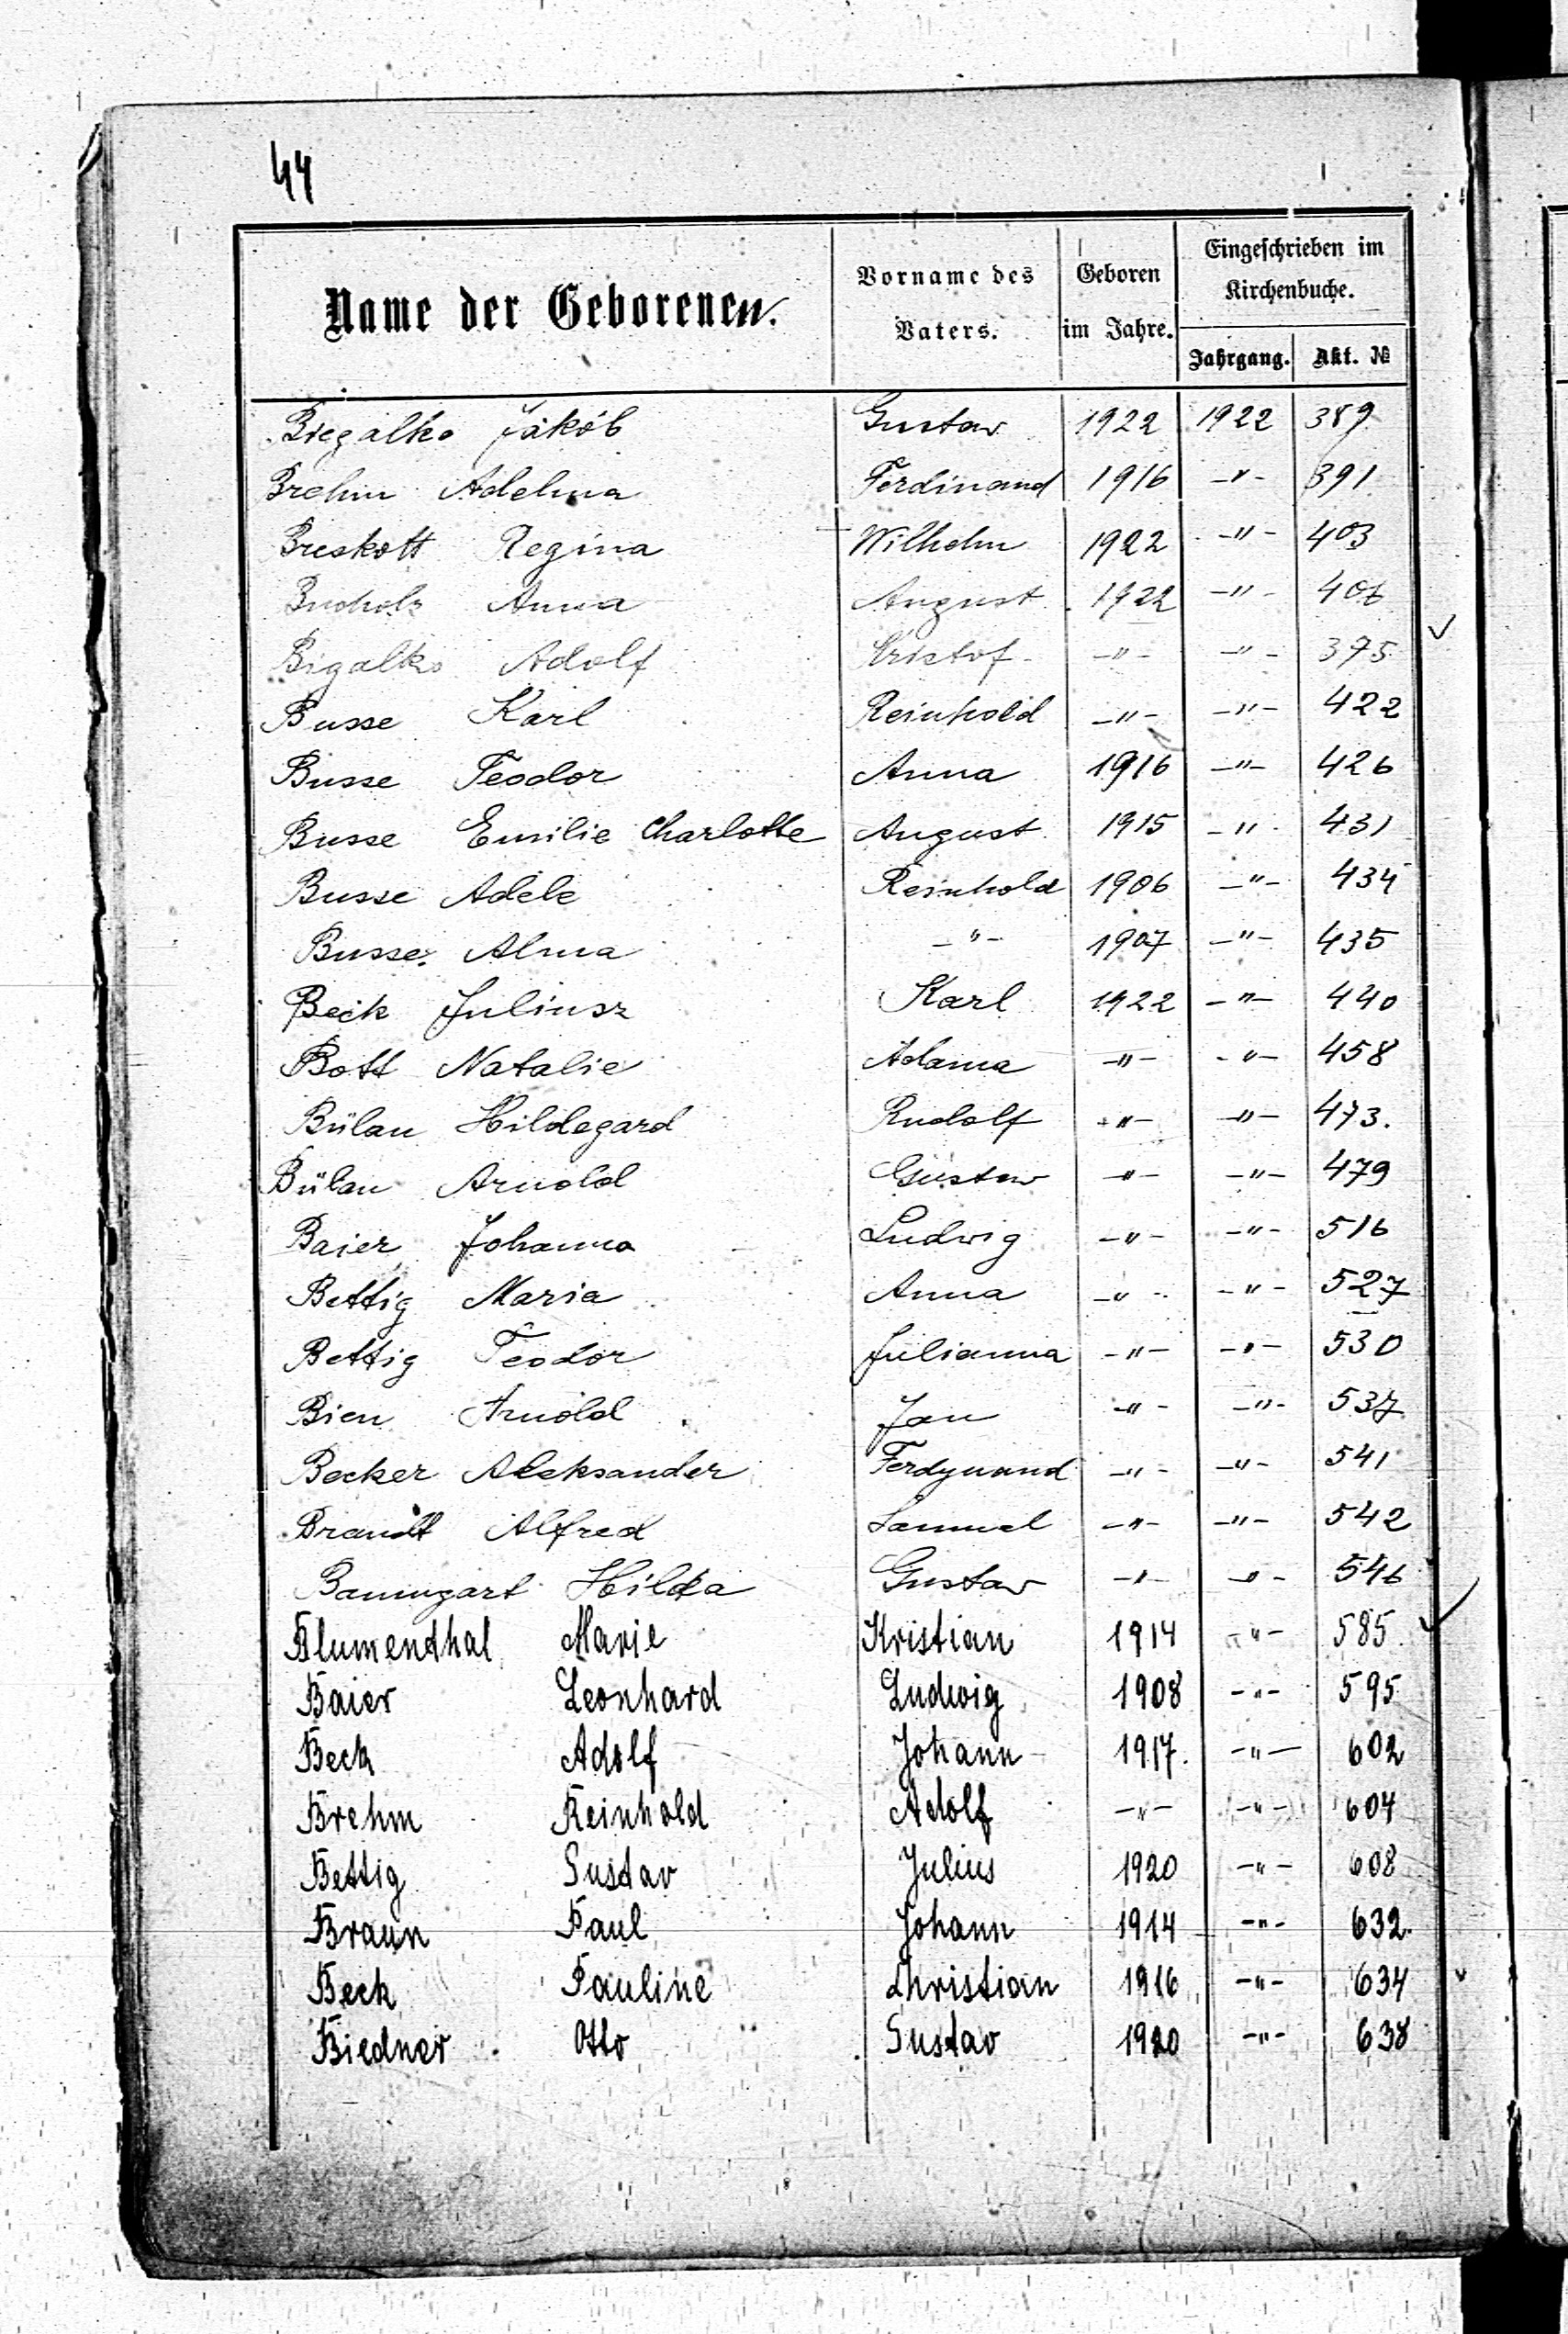 44
Name der Geborenen. Vorname des Vaters. Geboren im Jahre. Eingeschrieben im Kirchenbuche. Jahrgang. Akt. №
Biegalko Jakób Gustav 1922 1922 389
Brehm Adelma Ferdinand 1916 -"- 391
Breskott Regina Wilhelm 1922 -"- 403
Bucholz Anna August 1922 -"- 406
Bigalko Adolf Kristof -"- -"- 375
Busse Karl Reinhold -"- -"- 422
Busse Teodor Anna 1916 -"- 426
Busse Emilie Charlotte August 1915 -"- 431
Busse Adele Reinhold 1906 -"- 434
Busse Alma -"- 1907 -"- 435
Beck Juliusz Karl 1922 -"- 440
Bott Natalie Adama -"- -"- 458
Bülau Hildegard Rudolf -"- -"- 473.
Bülau Arnold Gustaw -"- -"- 479
Baier Johanna Ludwig -"- -"- 516
Bettig Maria Anna -"- -"- 527
Bettig Teodor Julianna -"- -"- 530
Bien Arnold Jan -"- -"- 537
Becker Aleksander Ferdynand -"- -"- 541
Brandt Alfred Samuel -"- -"- 542
Baumgart Hilda Gustav -"- -"- 546
Blumendhal Marie Kristian 1914 -"- 585
Baier Leonhard Ludwig 1908 -"- 595
Beck Adolf Johann 1917. -"- 602
Brehm Reinhold Adolf -"- -"- 604
Bettig Gustav Julius 1920 -"- 608
Braun Paul Johann 1914 -"- 632.
Beck Pauline Christian 1916 -"- 634
Biedner Otto Gustav 1920 -"- 638